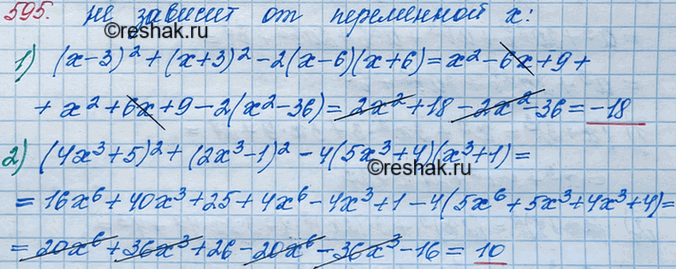 595. не зависит от переменной x:
©reshak.ru
1) (x-3)²+(x+3)²-2(x-6)(x+6)=x²-6x+9+
+x²+6x+9-2(x²-36)=2x²+18-2x²-36=-18
2) (4x³+5)²+(2x³-1)²-4(5x³+4)(x³+1)=
©reshak.ru
=16x⁶+40x³+25+4x⁶-4x³+1-4(5x⁶+5x³+4x³+4)=
=20x⁶+36x³+26-20x⁶-36x³-16=10
©reshak.ru